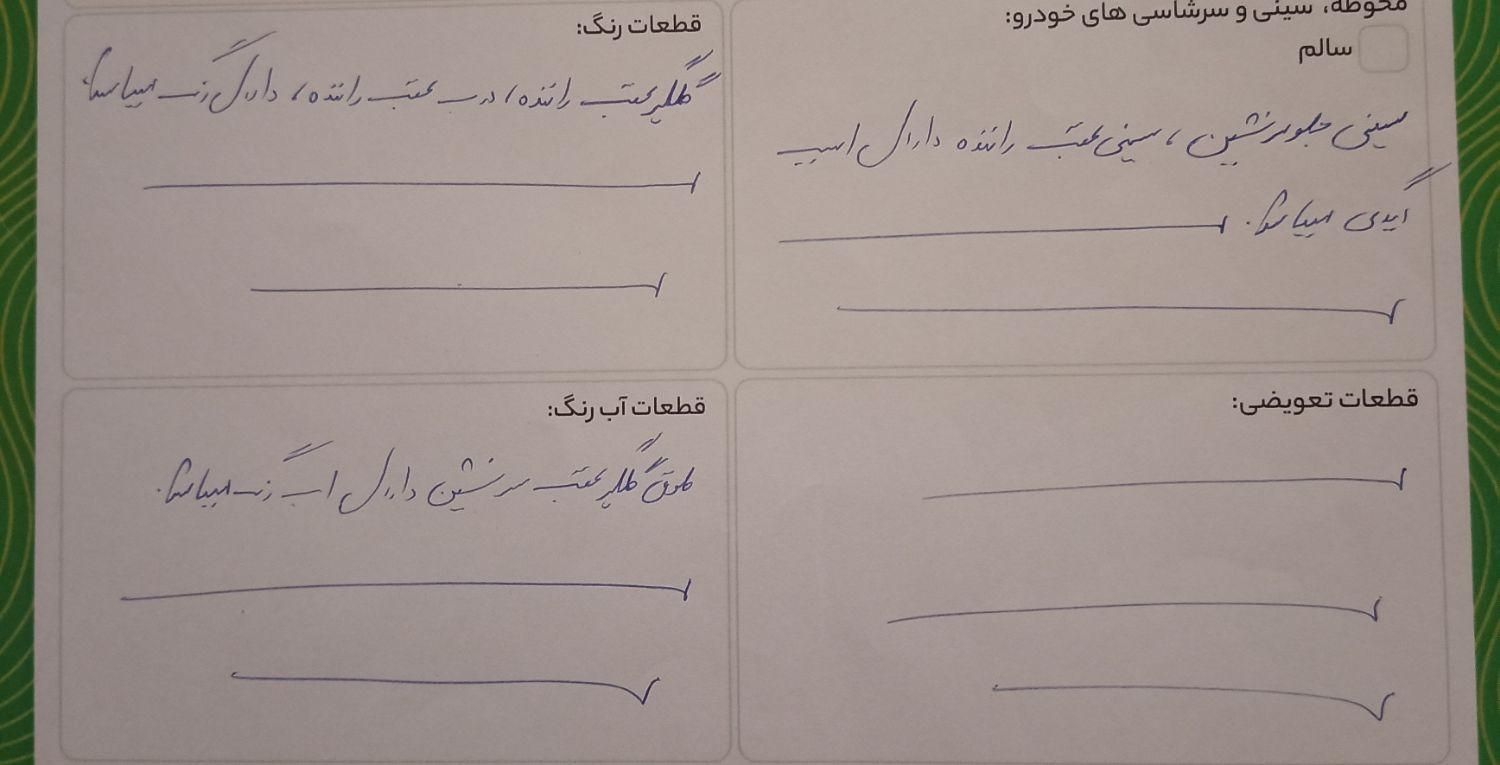 محوطه، سینی و سرشاسی های خودرو:
سالم
سینی جلو سرنشین ، سینی عقب راننده دارای اسیب
دیدگی میباشد.
قطعات رنگ:
گلگیر عقب راننده، درب عقب راننده، دارای رنگ میباشد.
قطعات تعویضی:
قطعات آب رنگ:
گلگیر عقب سرنشین دارای اب رنگ میباشد.